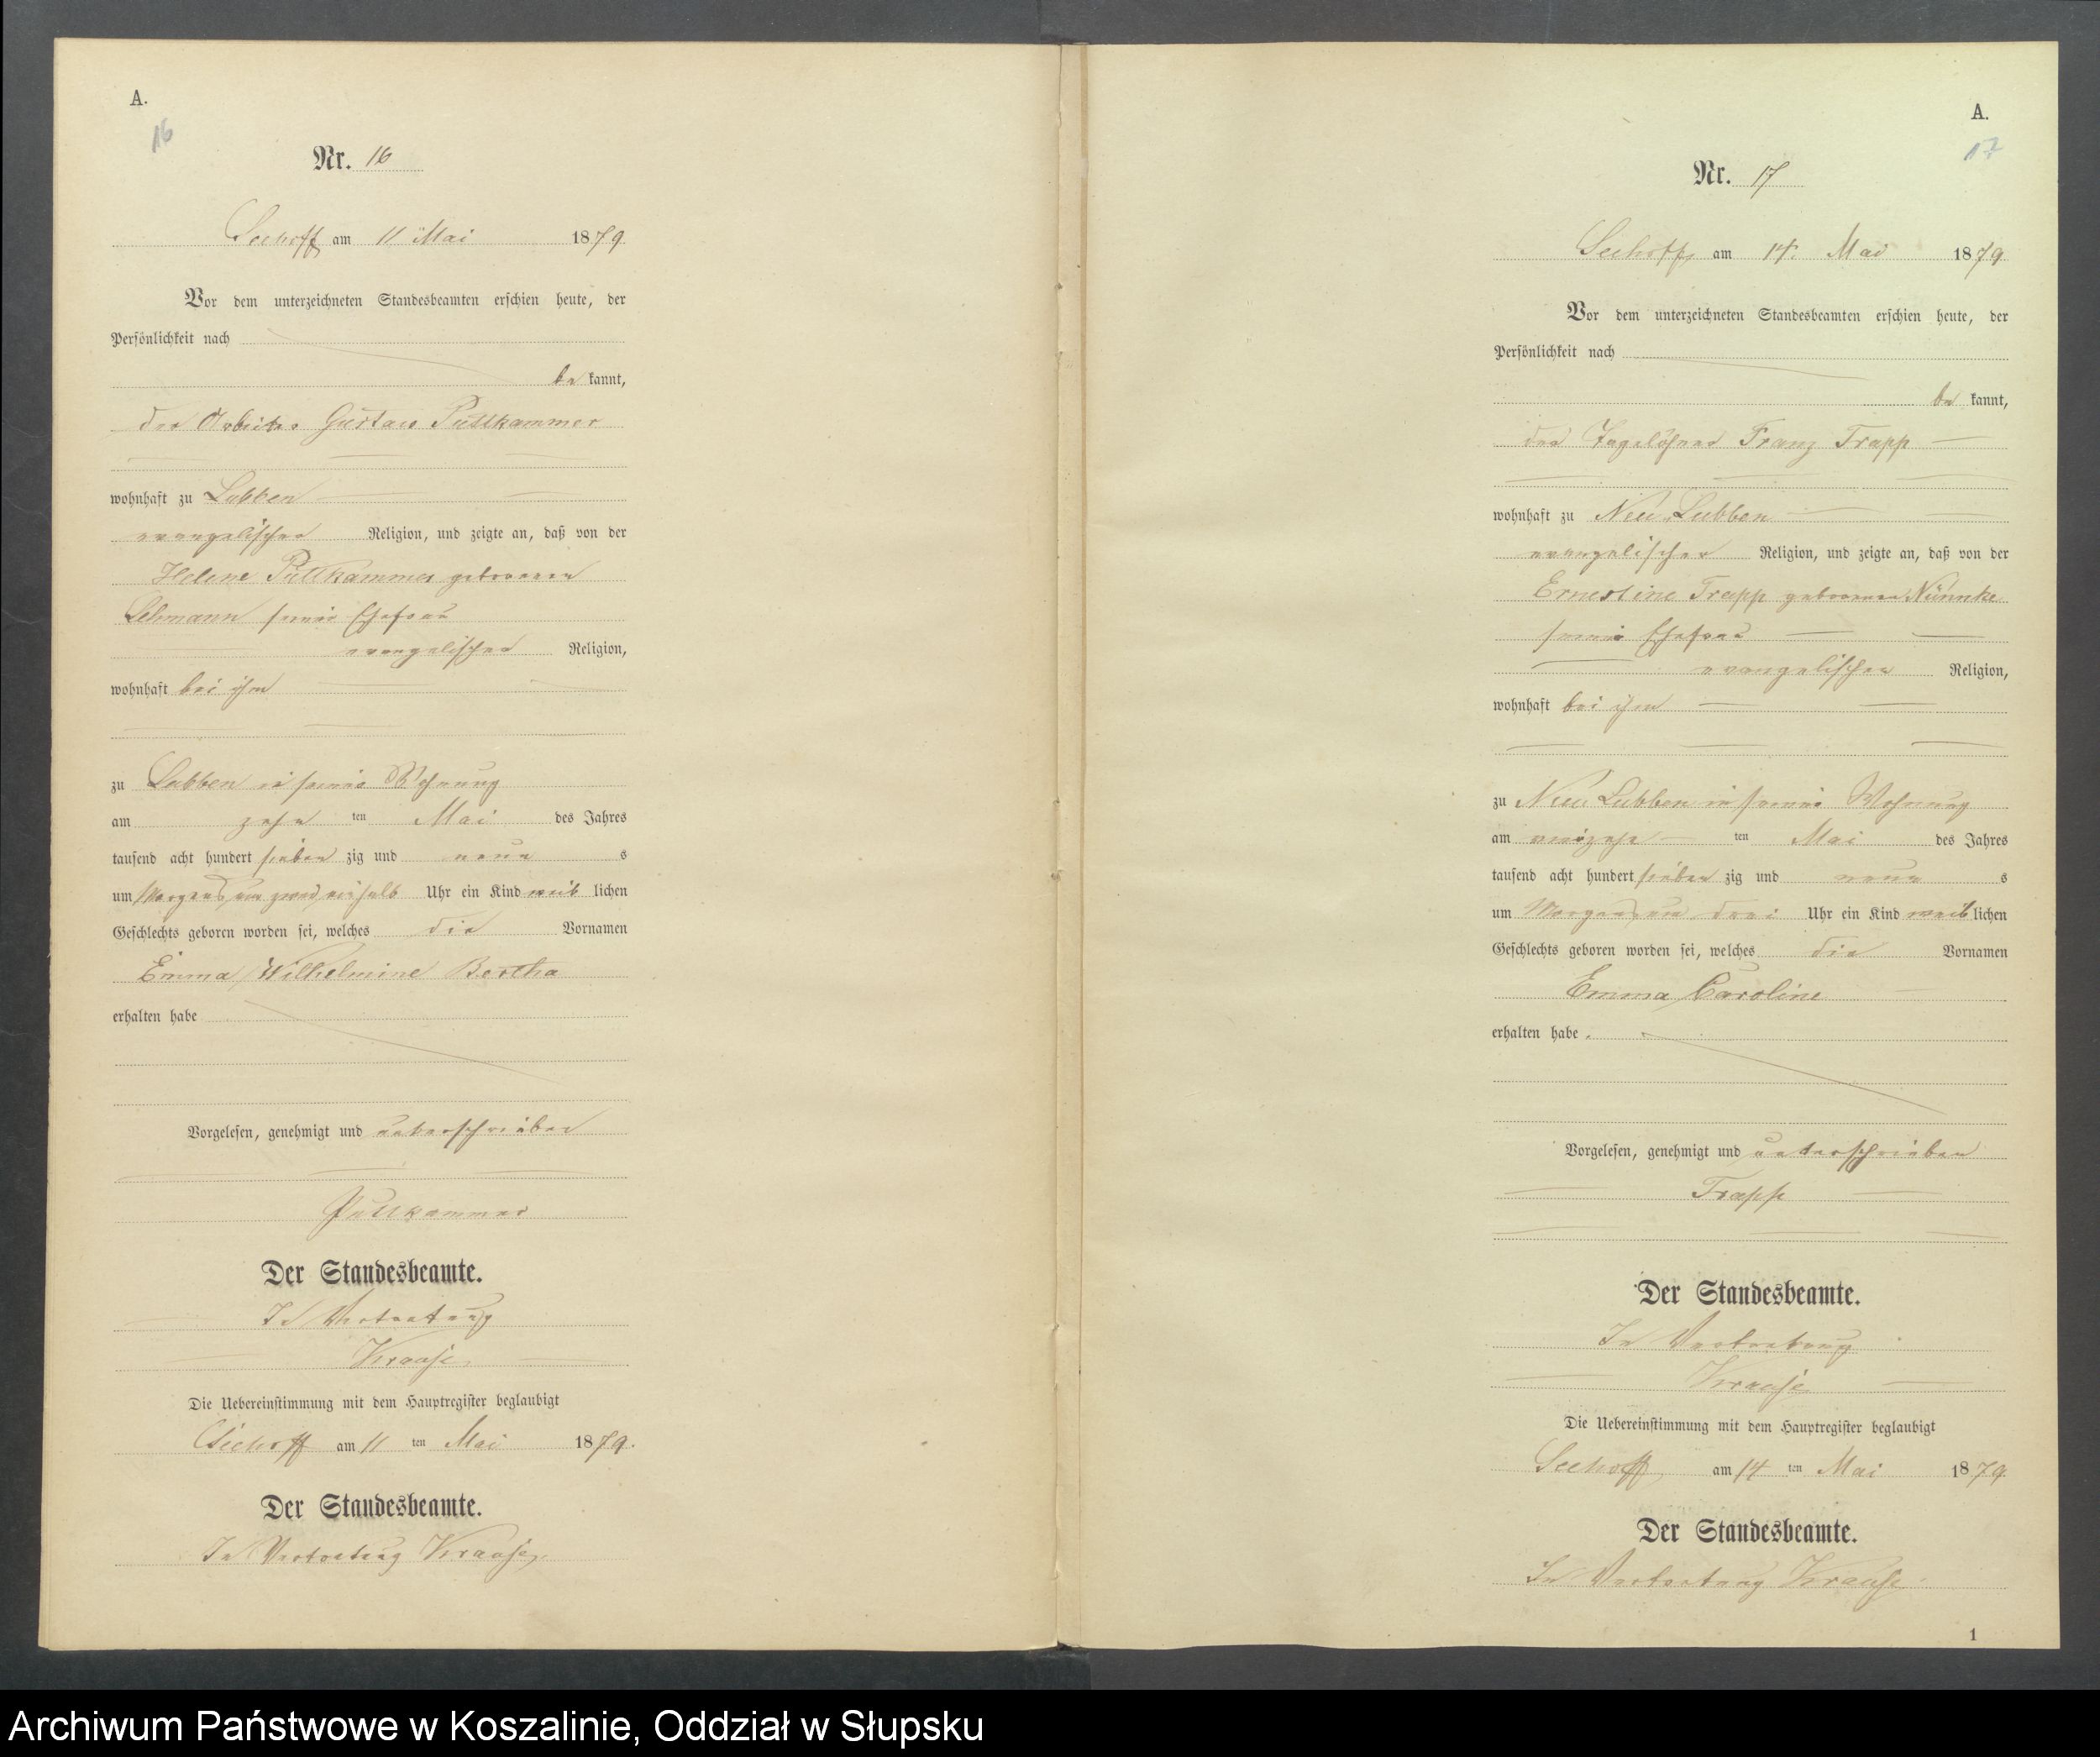 A.
16
Nr. 16
Seehoff am 11 Mai 1879.
Vor dem unterzeichneten Standesbeamten erschien heute, der
Persönlichkeit nach
be kannt,
der Arbeiter Gustav Puttkammer
wohnhaft zu Lubben
evangelischer Religion, und zeigte an, daß von der
Helene Puttkammer geborenen
Lehmann seiner Ehefrau
evangelischer Religion,
wohnhaft bei ihm
zu Lubben in seiner Wohnung
am zehn ten Mai des Jahres
tausend acht hundert sieben zig und neun s
um Morgens um Uhr ein Kind weib lichen
Geschlechts geboren worden sei, welches die Vornamen
Emma Wilhelmine Bertha
erhalten habe
Vorgelesen, genehmigt und unterschrieben
Puttkammer
Der Standesbeamte.
In Vertretung
Krause
Die Uebereinstimmung mit dem Hauptregister beglaubigt
Seehoff am 11 ten Mai 1879.
Der Standesbeamte.
In Vertretung Krause
A.
17
Nr. 17
Seehoff am 14. Mai 1879
Vor dem unterzeichneten Standesbeamten erschien heute, der
Persönlichkeit nach
be kannt,
der Tagelöhner Franz Trapp
wohnhaft zu Neu Lubben
evangelischer Religion, und zeigte an, daß von der
Ernestine Trapp geborenen Nünnke
seiner Ehefrau
evangelischer Religion,
wohnhaft bei ihm
zu Neu Lubben in seiner Wohnung
am vierzehn ten Mai des Jahres
tausend acht hundert sieben zig und neun s
um Morgens um drei Uhr ein Kind weib lichen
Geschlechts geboren worden sei, welches die Vornamen
Emma Caroline
erhalten habe.
Vorgelesen, genehmigt und unterschrieben
Trapp
Der Standesbeamte.
In Vertretung
Krause
Die Uebereinstimmung mit dem Hauptregister beglaubigt
Seehoff am 14 ten Mai 1879.
Der Standesbeamte.
In Vertretung Krause.
1
Archiwum Państwowe w Koszalinie, Oddział w Słupsku